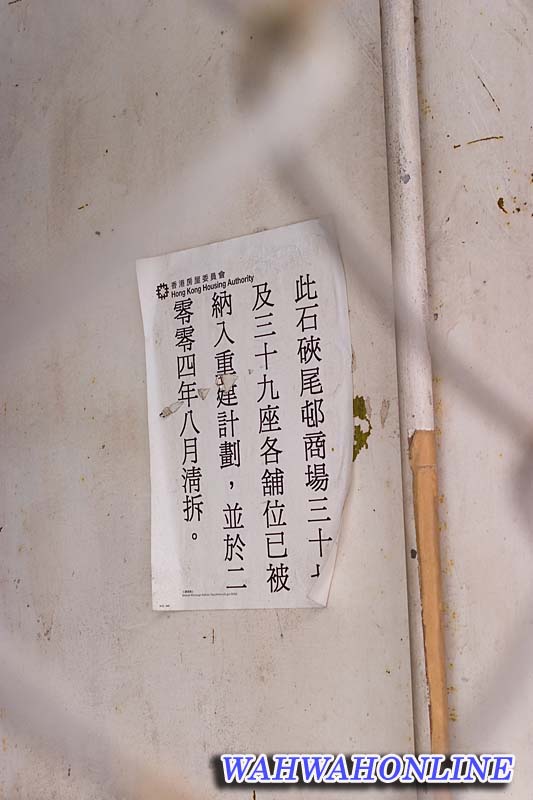 香港房屋委員會
Hong Kong Housing Authority
此石硤尾邨商場三十
及三十九座各舖位已被
納入重建計劃，並於二
零零四年八月清拆。
WAHWAHONLINE